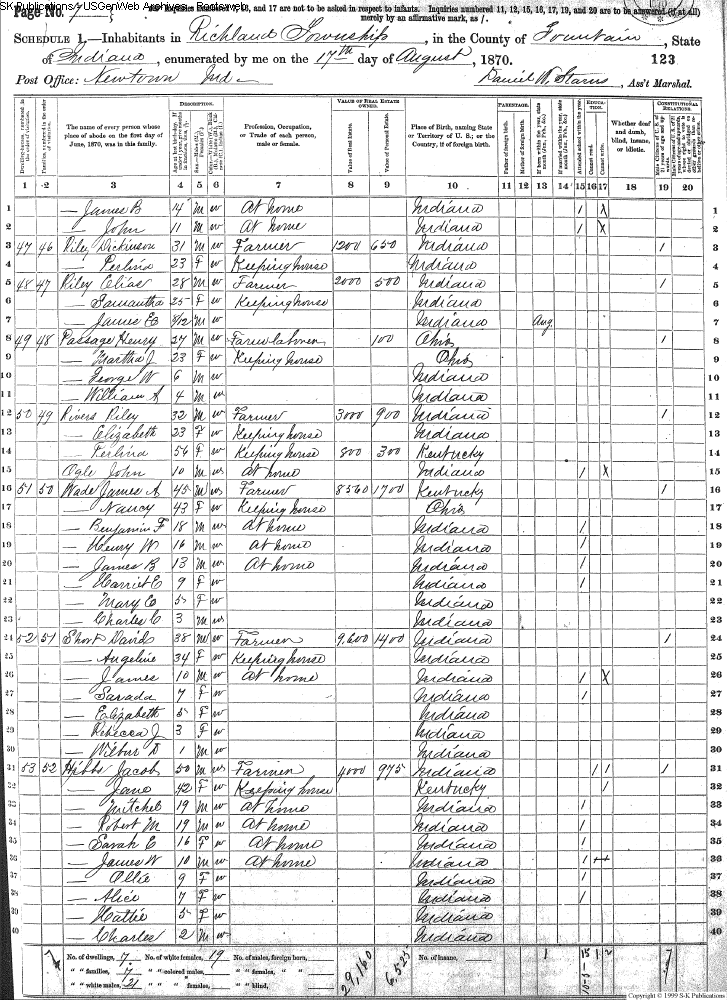 SK Publications / USGenWeb Archives - Rootsweb
Page No. 7
Inquiries numbered 7, 16, and 17 are not to be asked in respect to infants. Inquiries numbered 11, 12, 15, 16, 17, 19, and 20 are to be answered (if at all)
merely by an affirmative mark, as /.
SCHEDULE 1.—Inhabitants in Richland Township, in the County of Fountain, State
of Indiana, enumerated by me on the 17th day of August, 1870. 123
Post Office: Newtown Ind. Daniel W. Starns, Ass't Marshal.
DESCRIPTION. VALUE OF REAL ESTATE OWNED. PARENTAGE. EDUCATION. CONSTITUTIONAL RELATIONS.
The name of every person whose place of abode on the first day of June, 1870, was in this family.
Profession, Occupation, or Trade of each person, male or female.
Value of Real Estate. Value of Personal Estate.
Place of Birth, naming State or Territory of U. S.; or the Country, if of foreign birth.
Father of foreign birth. Mother of foreign birth.
Attended school within the year. Cannot read. Cannot write.
Whether deaf and dumb, blind, insane, or idiotic.
1 2 3 4 5 6 7 8 9 10 11 12 13 14 15 16 17 18 19 20
1 — James B 14 M w At home Indiana / X 1
2 — John 11 M w At home Indiana / X 2
3 47 46 Riley Dickinson 31 M w Farmer 1200 650 Indiana 1 3
4 — Perlina 23 F w Keeping house Indiana 4
5 48 47 Riley Elias 28 M w Farmer 2000 500 Indiana 1 5
6 — Samantha 25 F w Keeping house Indiana 6
7 — James E /12 M w Indiana Aug. 7
8 49 48 Passage Henry 27 M w Farm laborer 100 Ohio 1 8
9 — Martha J 23 F w Keeping house Ohio 9
10 — George W 6 M w Indiana 10
11 — William A 4 M w Indiana 11
12 50 49 Rivers Riley 32 M w Farmer 3000 900 Indiana 1 12
13 — Elizabeth 23 F w Keeping house Indiana 13
14 — Perlina 56 F w Keeping house 800 300 Kentucky 14
15 Ogle John 10 M w At home Indiana / X 15
16 51 50 Wade James A 45 M w Farmer 8560 1700 Kentucky 1 16
17 — Nancy 43 F w Keeping house Ohio 17
18 — Benjamin F 18 M w At home Indiana / 18
19 — Henry W 16 M w At home Indiana / 19
20 — James B 13 M w At home Indiana / 20
21 — Harriet E 9 F w Indiana / 21
22 — Mary E 5 F w Indiana 22
23 — Charles C 3 M w Indiana 23
24 52 51 Short David 38 M w Farmer 9,600 1400 Indiana 1 24
25 — Angeline 34 F w Keeping house Indiana 25
26 — James 10 M w At home Indiana / X 26
27 — Sarada 7 F w Indiana / 27
28 — Elizabeth 5 F w Indiana 28
29 — Rebecca J 3 F w Indiana 29
30 — Wilbur D 1 M w Indiana 30
31 53 52 Hibbs Jacob 50 M w Farmer 4000 975 Indiana / / 1 31
32 — Jane 42 F w Keeping house Kentucky / 32
33 — Mitchel 19 M w At home Indiana / 33
34 — Robert M 19 M w At home Indiana / 34
35 — Sarah E 16 F w At home Indiana / 35
36 — James W 10 M w At home Indiana / 36
37 — Ollie 9 F w Indiana / 37
38 — Alice 7 F w Indiana / 38
39 — Hattie 5 F w Indiana 39
40 — Charles 2 M w Indiana 40
No. of dwellings, 7. No. of white females, 19 No. of males, foreign born, 29,160 6,525 No. of insane, 1 15 1 2 7
" " families, 7 " " colored males, " " females, " "
" " white males, 21 " " " females, " " blind,
Copyright © 1999 S-K Publications